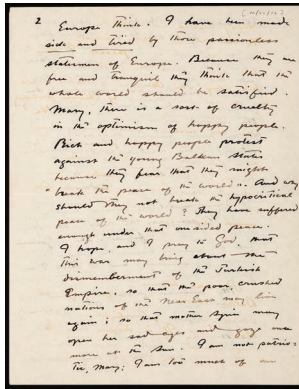 2
Europe think. I have been made
sick and tired by those passionless
statesmen of Europe. Because they are
free and tranquil they think that the
whole world should be satisfied.
Mary, there is a sort of cruelty
in the optimism of happy people.
Rich and happy people protest
against the young Balkan States
because they fear that they might
"break the peace of the world". And why
should they not break the hypocritical
peace of the world? They have suffered
enough under that onesided peace.
I hope, and I pray to God, that
this war may bring about the
dismemberment of the Turkish
Empire, so that the poor, crushed
nations of the Near East may live
again; so that mother Syria may
open her sad eyes and gaze once
more at the Sun. I am not patrio-
tic, Mary: I am too much of an